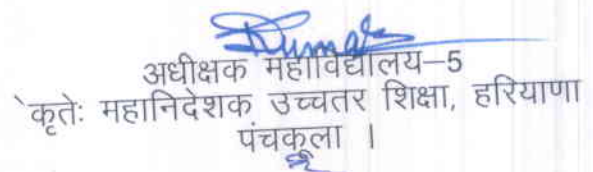 अधीक्षक महाविद्यालय–5
कृतेः महानिदेशक उच्चतर शिक्षा, हरियाणा
पंचकूला ।